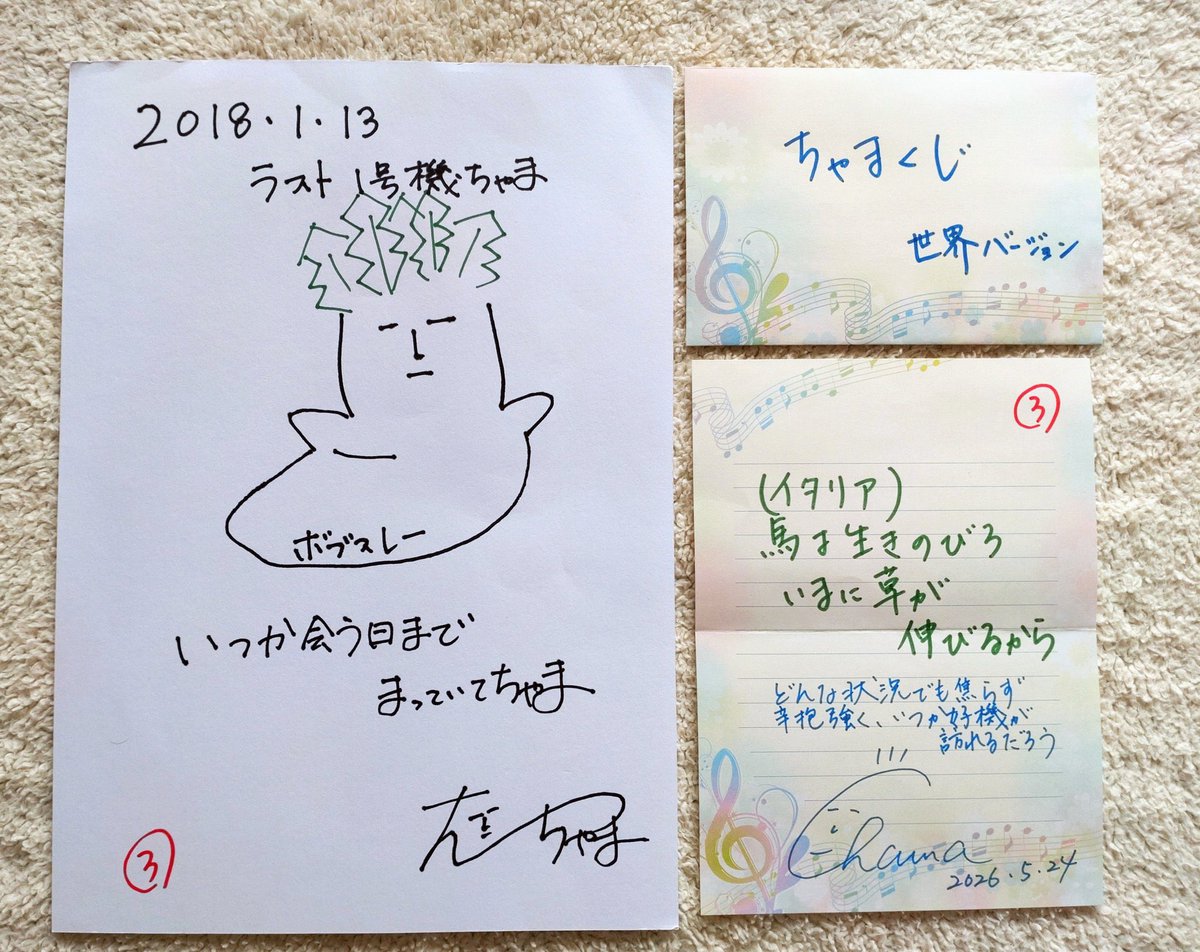 2018.1.13
ラスト1号機ちゃま
ボブスレー
いつか会う日まで
まっていてちゃま
ちゃま
③
ちゃまくじ
世界バージョン
③
(イタリア)
馬よ生きのびろ
いまに草が
伸びるから
どんな状況でも焦らず
辛抱強く、いつか好機が
訪れるだろう
Chama
2026.5.24